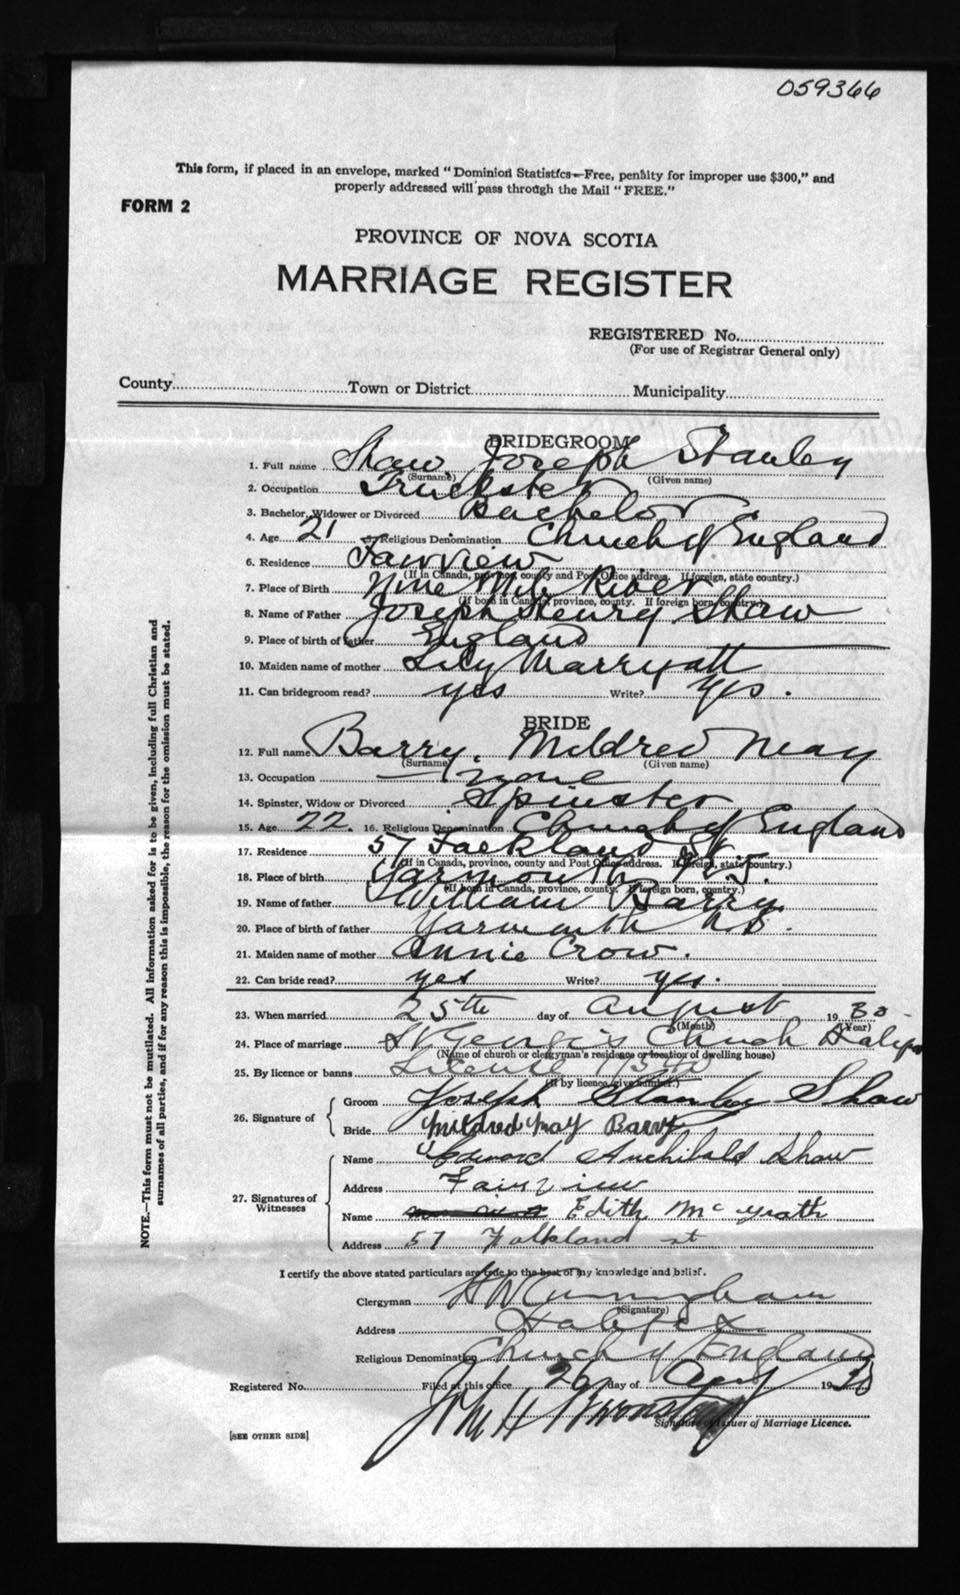 059366
This form, if placed in an envelope, marked "Dominion Statistics—Free, penalty for improper use $300," and
properly addressed will pass through the Mail "FREE."
FORM 2
PROVINCE OF NOVA SCOTIA
MARRIAGE REGISTER
REGISTERED No.
(For use of Registrar General only)
County Town or District Municipality
BRIDEGROOM
1. Full name Shaw, Joseph Stanley
(Surname) (Given name)
2. Occupation Truckster
3. Bachelor, Widower or Divorced Bachelor
4. Age 21 5. Religious Denomination Church of England
6. Residence Fairview
(If in Canada, province, county and Post Office address. If foreign, state country.)
7. Place of Birth Nine Mile River
(If born in Canada, province, county. If foreign born, country.)
8. Name of Father Joseph Henry Shaw
9. Place of birth of father England
10. Maiden name of mother Lily Marryatt
11. Can bridegroom read? yes Write? yes.
BRIDE
12. Full name Barry, Mildred May
(Surname) (Given name)
13. Occupation — none
14. Spinster, Widow or Divorced Spinster
15. Age 22. 16. Religious Denomination Church of England
17. Residence 57 Falkland St
(If in Canada, province, county and Post Office address. If foreign, state country.)
18. Place of birth Yarmouth N.S.
(If born in Canada, province, county. If foreign born, country.)
19. Name of father William Barry
20. Place of birth of father Yarmouth N.S.
21. Maiden name of mother Annie Crow.
22. Can bride read? yes Write? yes.
23. When married 25th day of August 1930
(Month) (Year)
24. Place of marriage St George's Church Halifax
(Name of church or clergyman's residence or location of dwelling house)
25. By licence or banns License
(If by licence give number.)
26. Signature of Groom Joseph Stanley Shaw
Bride Mildred May Barry
27. Signatures of Witnesses Name Edward Archibald Shaw
Address Fairview
Name Edith McGrath
Address 57 Falkland st
I certify the above stated particulars are true to the best of my knowledge and belief.
Clergyman H W Cunningham
(Signature)
Address Halifax
Religious Denomination Church of England
Registered No. Filed at this office 26 day of Aug 1930
Signature of Issuer of Marriage Licence.
[SEE OTHER SIDE]
NOTE.—This form must not be mutilated. All information asked for is to be given, including full Christian and
surnames of all parties, and if for any reason this is impossible, the reason for the omission must be stated.